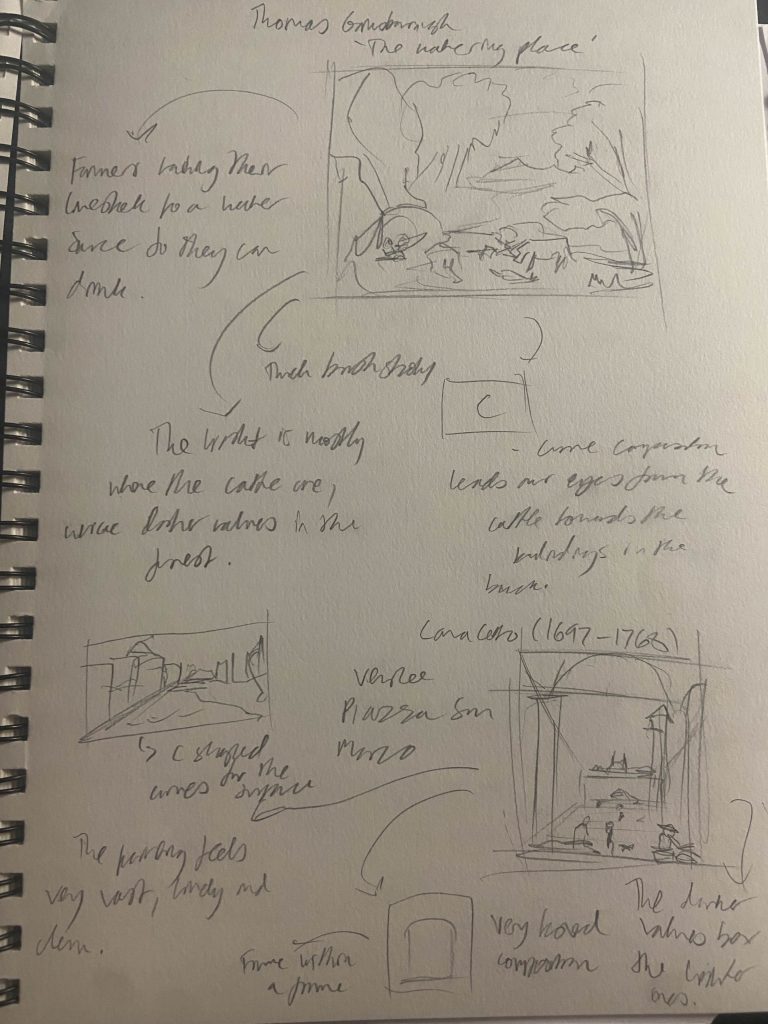 Thomas Gainsborough
- 'The watering place'
Farmers taking their
livestock to a water
source so they can
drink.
Thick brush
The light is mostly
where the cattle are,
darker values in the
forest.
C
- curve composition
leads our eyes from the
cattle towards the
buildings in the
back.
Canaletto (1697-1768)
Venice
Piazza San
Marco
C shaped
curves for the
surface
The painting feels
very vast, lonely and
Frame within
a frame
Very boxed
composition
The darker
values box
the lighter
ones.